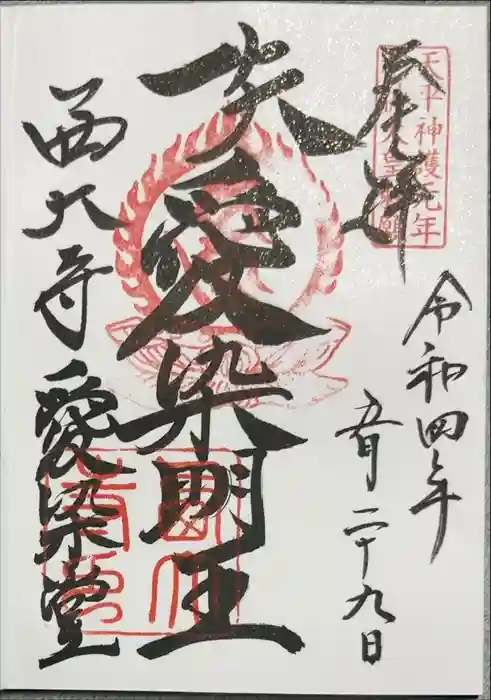 奉拝
天平神護元年
令和四年
五月二十九日
愛染明王
西大寺愛染堂